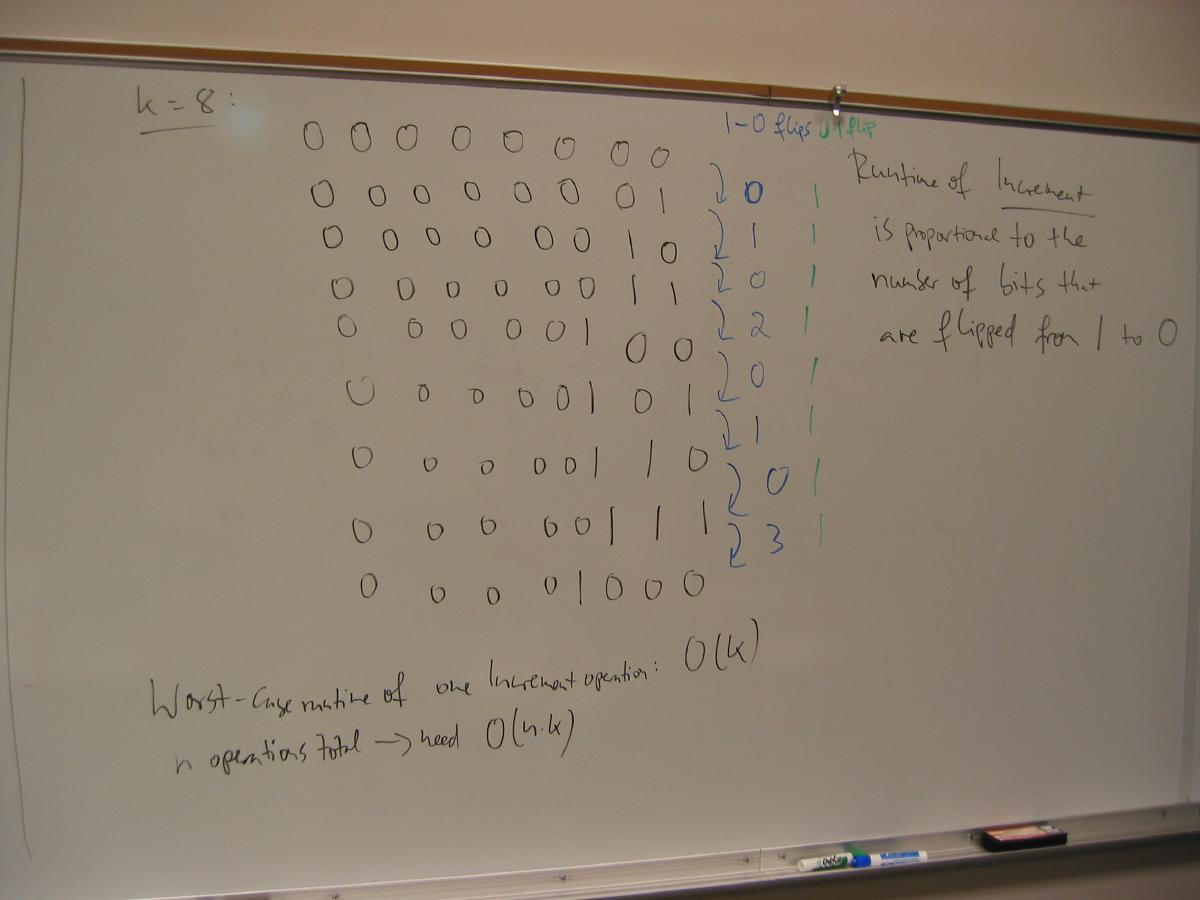 k = 8 :
1-0 flips 0-1 flip
0 0 0 0 0 0 0 0
0 0 0 0 0 0 0 1 0 1
0 0 0 0 0 0 1 0 1 1
0 0 0 0 0 0 1 1 0 1
0 0 0 0 0 1 0 0 2 1
0 0 0 0 0 1 0 1 0 1
0 0 0 0 0 1 1 0 1 1
0 0 0 0 0 1 1 1 0 1
0 0 0 0 1 0 0 0 3 1
Runtime of Increment
is proportional to the
number of bits that
are flipped from 1 to 0
Worst-case runtime of one Increment operation: O(k)
n operations total → need O(n·k)
expo